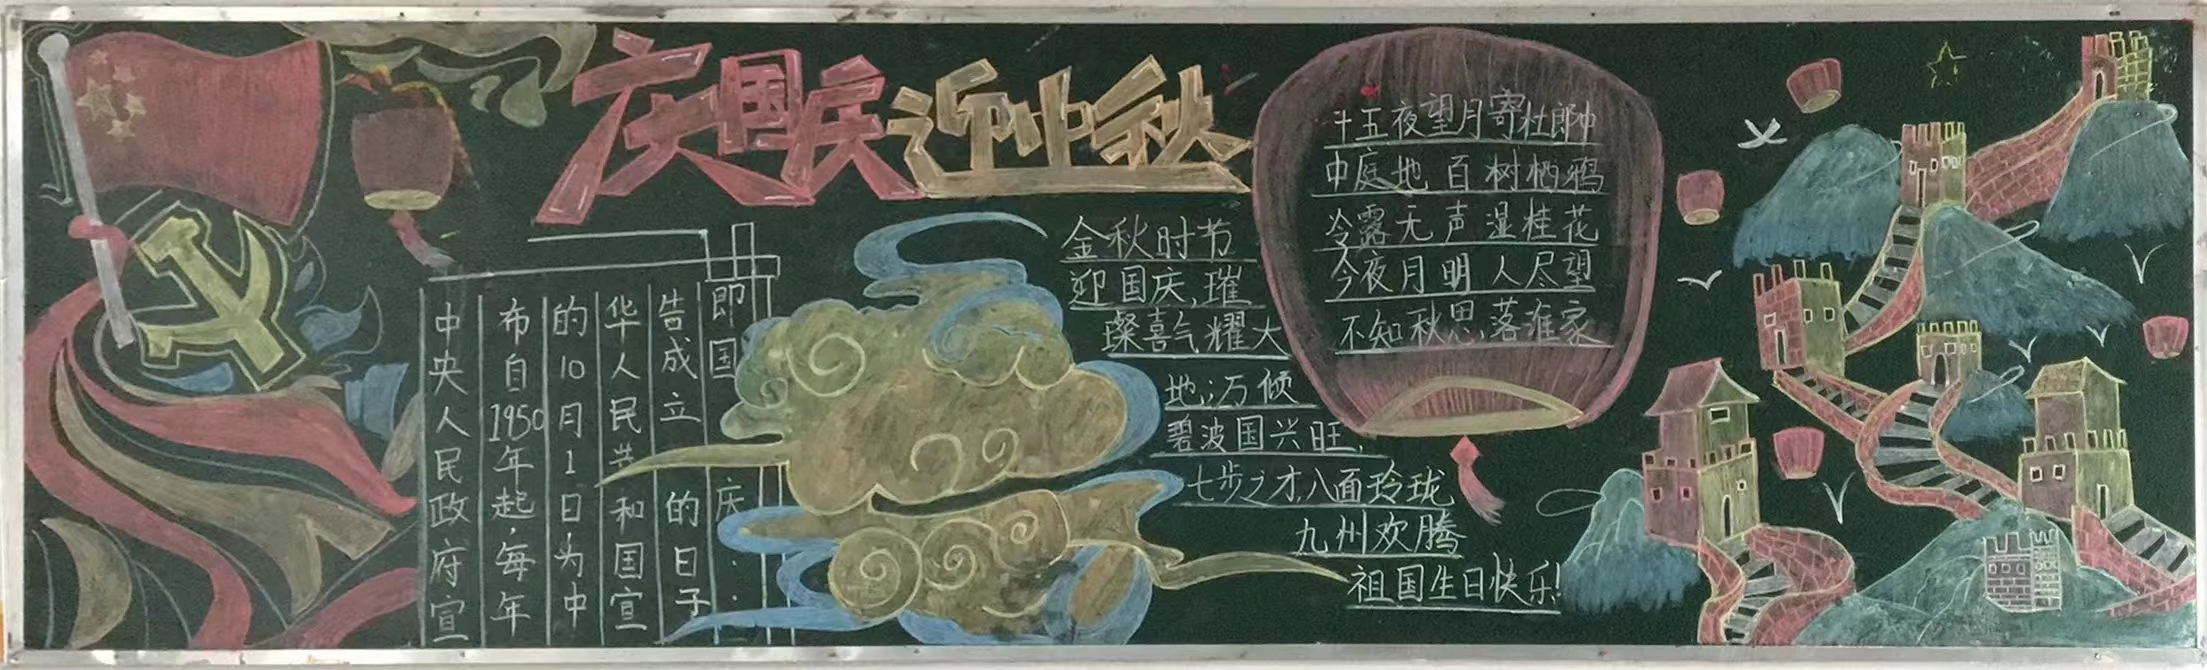 庆国庆迎中秋
中央人民政府宣
布自1950年起,每年
的10月1日为中
华人民共和国宣
告成立的日子
即国庆..
金秋时节
迎国庆,璀
璨喜气耀大
地;万倾
碧波国兴旺,
七步之才,八面玲珑
九州欢腾
祖国生日快乐!
十五夜望月寄杜郎中
中庭地百树栖鸦
冷露无声湿桂花
今夜月明人尽望
不知秋思,落谁家